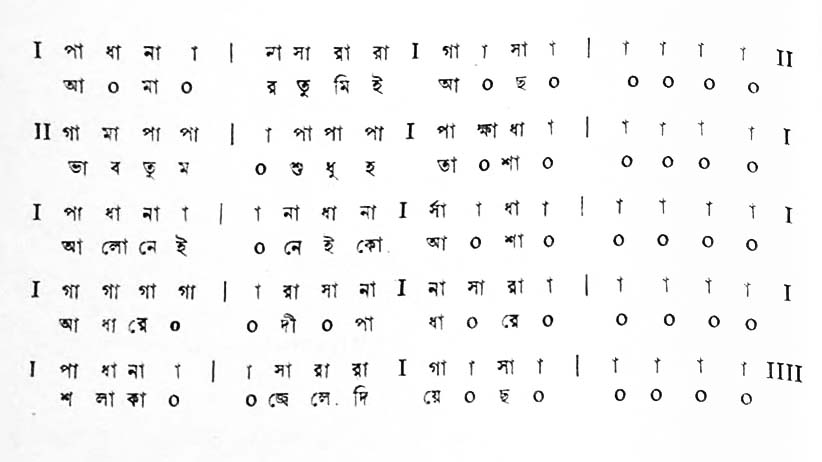 I পা ধা না া | না সা রা রা I গা া সা া | া া া া II
আ ০ মা ০ র তু মি ই আ ০ ছ ০ ০ ০ ০ ০
II গা মা পা পা | া পা পা পা I পা ক্ষা ধা া | া া া া I
ভা ব তু ম ০ শু ধু হ তা ০ শা ০ ০ ০ ০ ০
I পা ধা না া | া না ধা না I র্সা া ধা া | া া া া I
আ লো নে ই ০ নে ই কো. আ ০ শা ০ ০ ০ ০ ০
I গা গা গা গা | া রা সা না I না সা রা া | া া া া I
আ ধা রে ০ ০ দী ০ পা ধা ০ রে ০ ০ ০ ০ ০
I পা ধা না া | া সা রা রা I গা া সা া | া া া া IIII
শ লা কা ০ ০ জে লে. দি য়ে ০ ছ ০ ০ ০ ০ ০